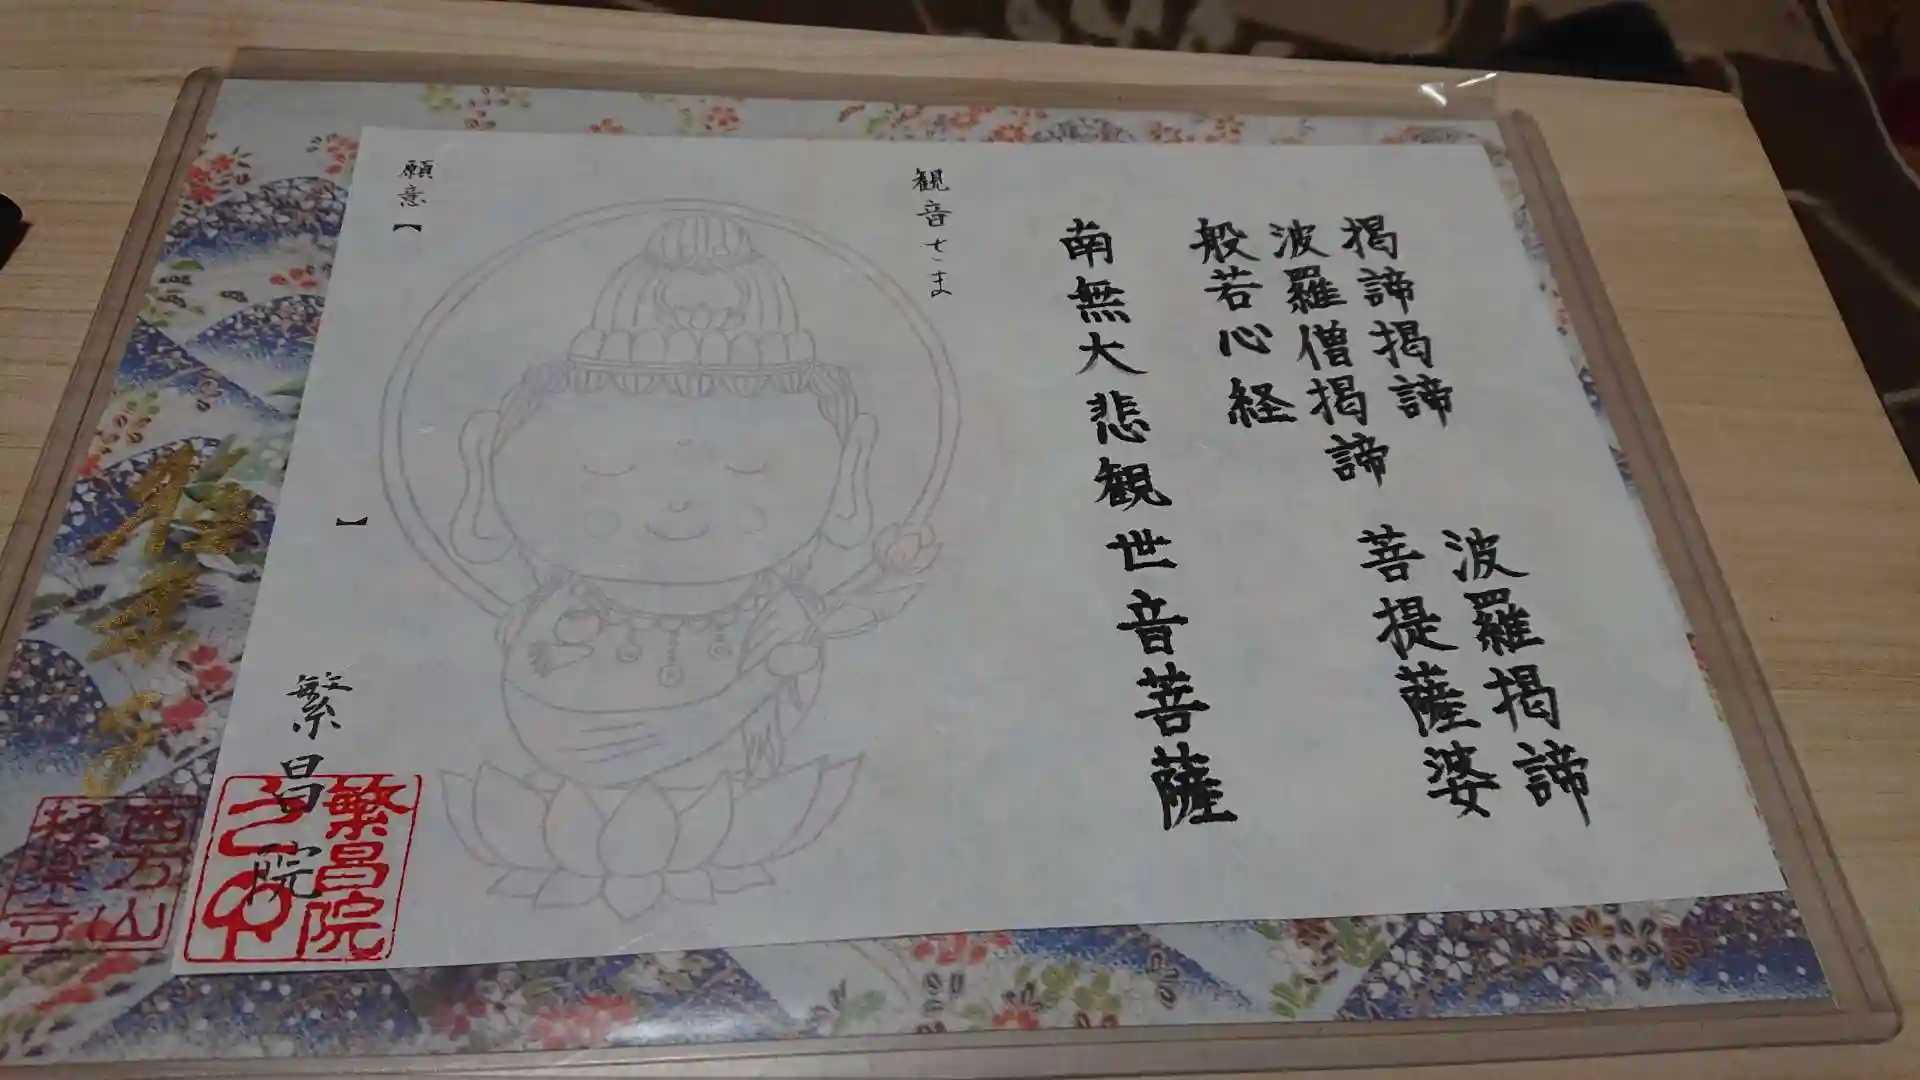 揭諦揭諦 波羅揭諦
波羅僧揭諦 菩提薩婆
般若心経
南無大悲観世音菩薩
観音さま
願意【 】
繁昌院
繁昌院
西方山
極楽寺